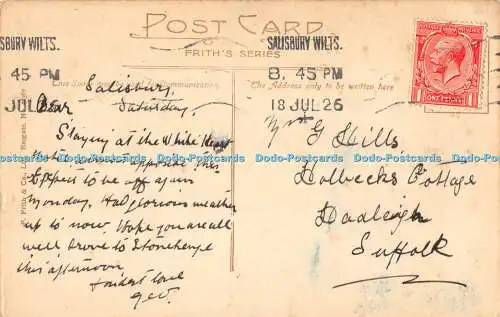 POST CARD
FRITH'S SERIES
SBURY WILTS.
45 PM
JUL 26
SALISBURY WILTS.
8. 45 PM
18 JUL 26
The Address only to be written here
ONE PENNY
F. Frith & Co., Ltd., Reigate
Salisbury,
Saturday,
Dear
Staying at the White Hart
Hotel opposite this
Expect to be off again
Monday. Had glorious weather
up to now. Hope you are all
well. Drove to Stonehenge
this afternoon.
Fondest love
Geo.
G Hills
Holbecks Cottage
Hadleigh
Suffolk
Dodo-Postcards Dodo-Postcards Dodo-Postcards Dodo-Postcards Dodo-Postcards